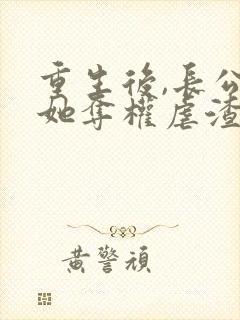 重生後,長公
她奪權虐渣
黃警頑